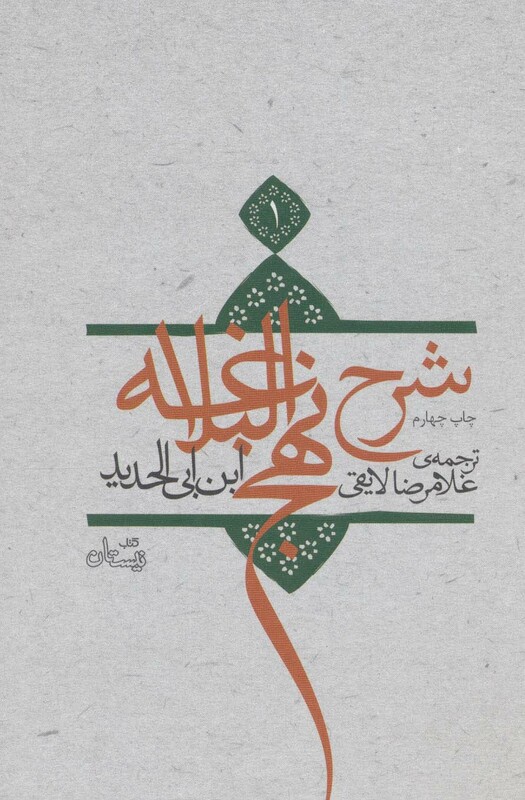 ۱
شرح نهج البلاغه
چاپ چهارم
ترجمه‌ی
غلامرضا لایقی
ابن ابی الحدید
کتاب
نیستان